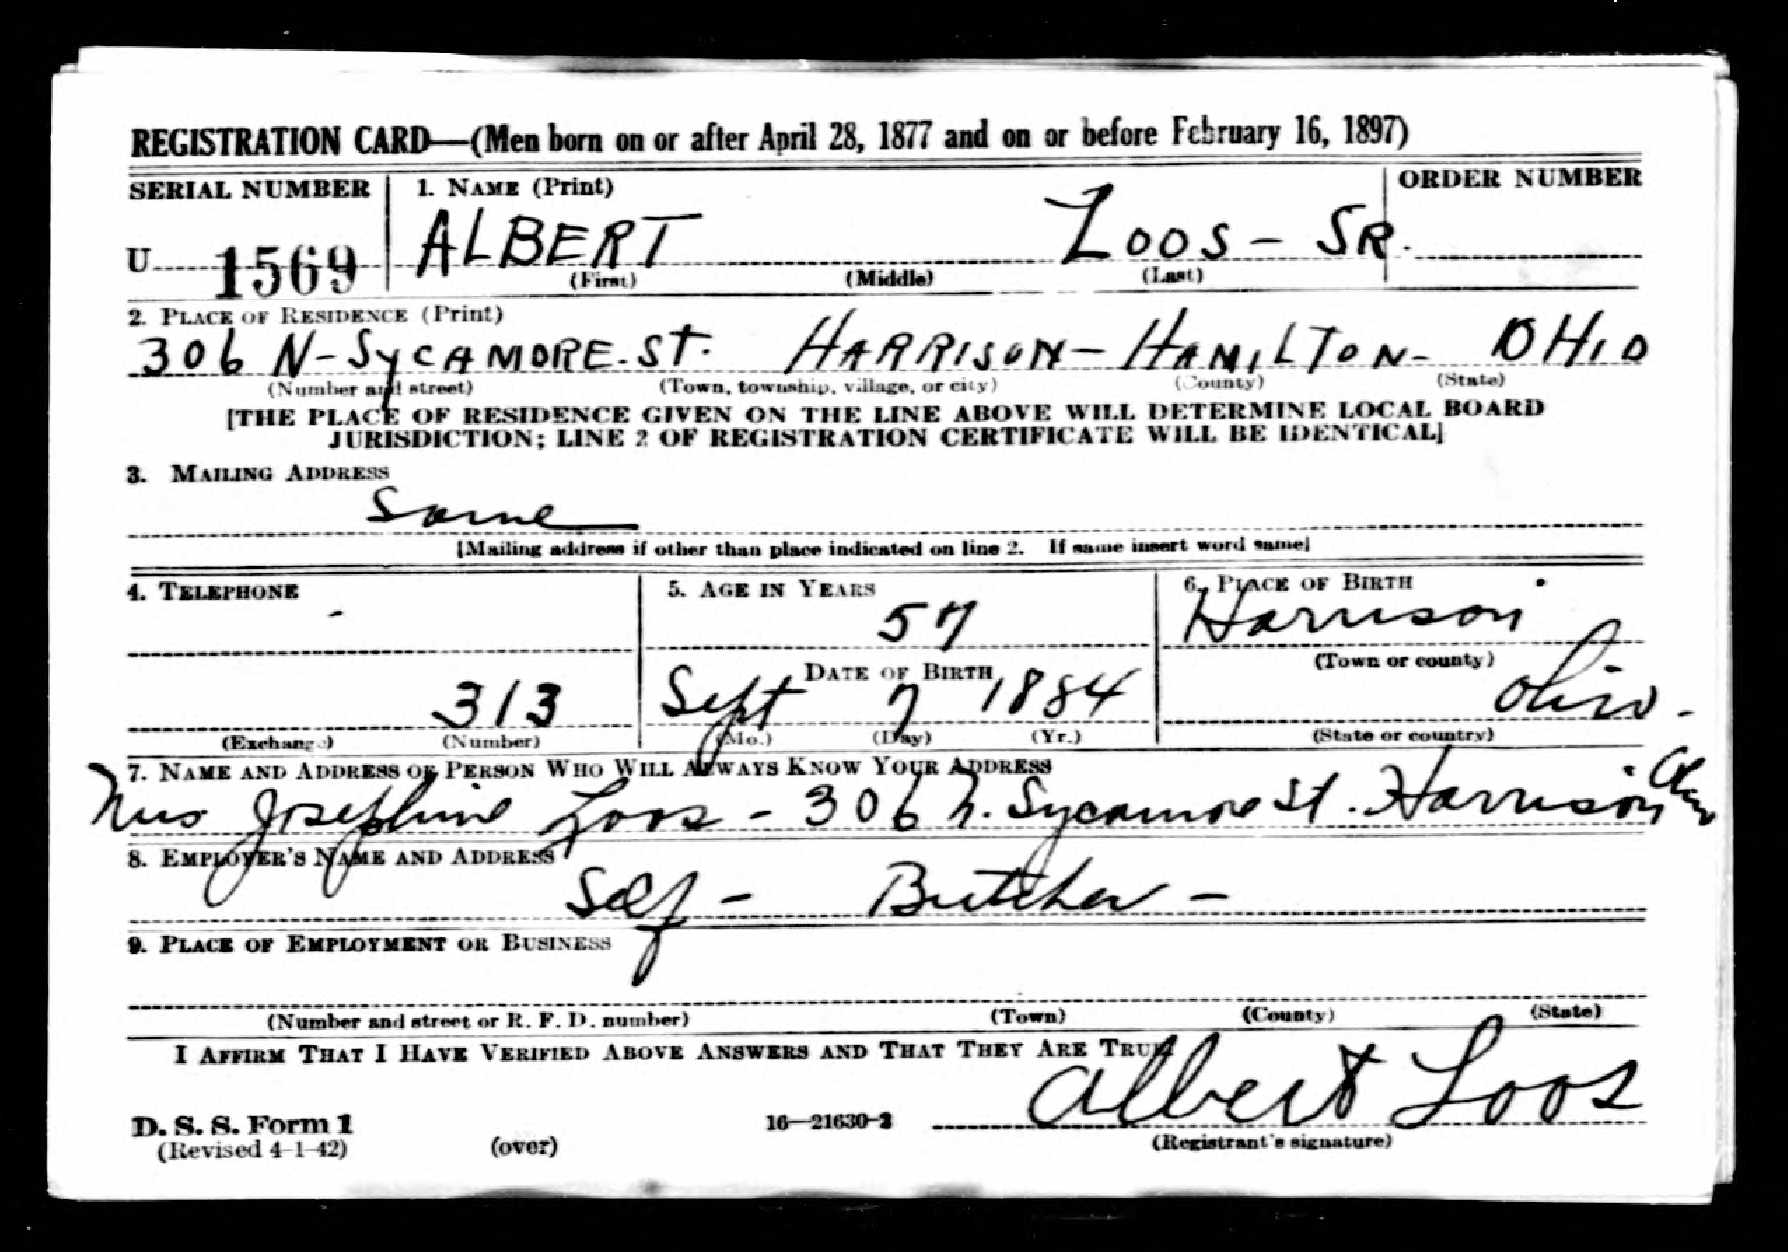 REGISTRATION CARD—(Men born on or after April 28, 1877 and on or before February 16, 1897)
SERIAL NUMBER 1. NAME (Print) ORDER NUMBER
U 1569 ALBERT LOOS - SR.
(First) (Middle) (Last)
2. PLACE OF RESIDENCE (Print)
306 N-SYCAMORE-ST. HARRISON- HAMILTON- OHIO
(Number and street) (Town, township, village, or city) (County) (State)
[THE PLACE OF RESIDENCE GIVEN ON THE LINE ABOVE WILL DETERMINE LOCAL BOARD
JURISDICTION; LINE 2 OF REGISTRATION CERTIFICATE WILL BE IDENTICAL]
3. MAILING ADDRESS
Same
[Mailing address if other than place indicated on line 2. If same insert word same]
4. TELEPHONE 5. AGE IN YEARS 6. PLACE OF BIRTH
- 57 Harrison
DATE OF BIRTH (Town or county)
313 Sept 7 1884 Ohio-
(Exchange) (Number) (Mo.) (Day) (Yr.) (State or country)
7. NAME AND ADDRESS OF PERSON WHO WILL ALWAYS KNOW YOUR ADDRESS
Mrs Josephine Loos - 306 N. Sycamore St. Harrison Ohio
8. EMPLOYER'S NAME AND ADDRESS
Self - Butcher -
9. PLACE OF EMPLOYMENT OR BUSINESS
(Number and street or R. F. D. number) (Town) (County) (State)
I AFFIRM THAT I HAVE VERIFIED ABOVE ANSWERS AND THAT THEY ARE TRUE
Albert Loos
D. S. S. Form 1 16—21630-2
(Revised 4-1-42) (over) (Registrant's signature)